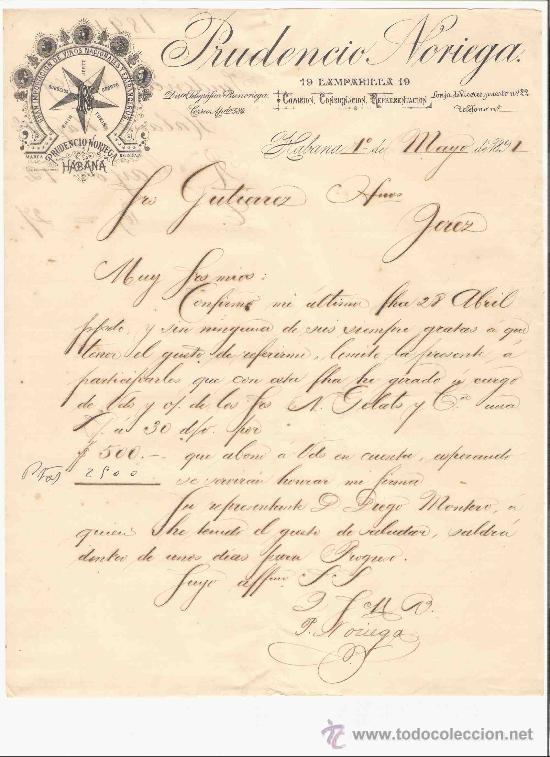 Prudencio Noriega.
19 LAMPARILLA 19
Comision, Consignacion, Representacion
PRUDENCIO NORIEGA
HABANA
MARCA
Habana 1º de Mayo de 1891
Sres Gutierrez Hnos
Jerez
Muy Sres mios:
Confirmo mi último fha 28 Abril
ppdo, y sin ninguna de sus siempre gratas a que
tener el gusto de referirme, limito la presente á
participarles que con esta fha he girado á cargo
de Vds y o/ de los Sres N. Gelats y Cª una
L/ á 30 d/v. por
$ 500.- que abono á Vds en cuenta, esperando
Ptas 2500 se servirán honrar mi firma
Su representante D Diego Montero, á
quien he tenido el gusto de saludar, saldrá
dentro de unos dias para Progreso.
Suyo affmo S S
P. Noriega
www.todocoleccion.net